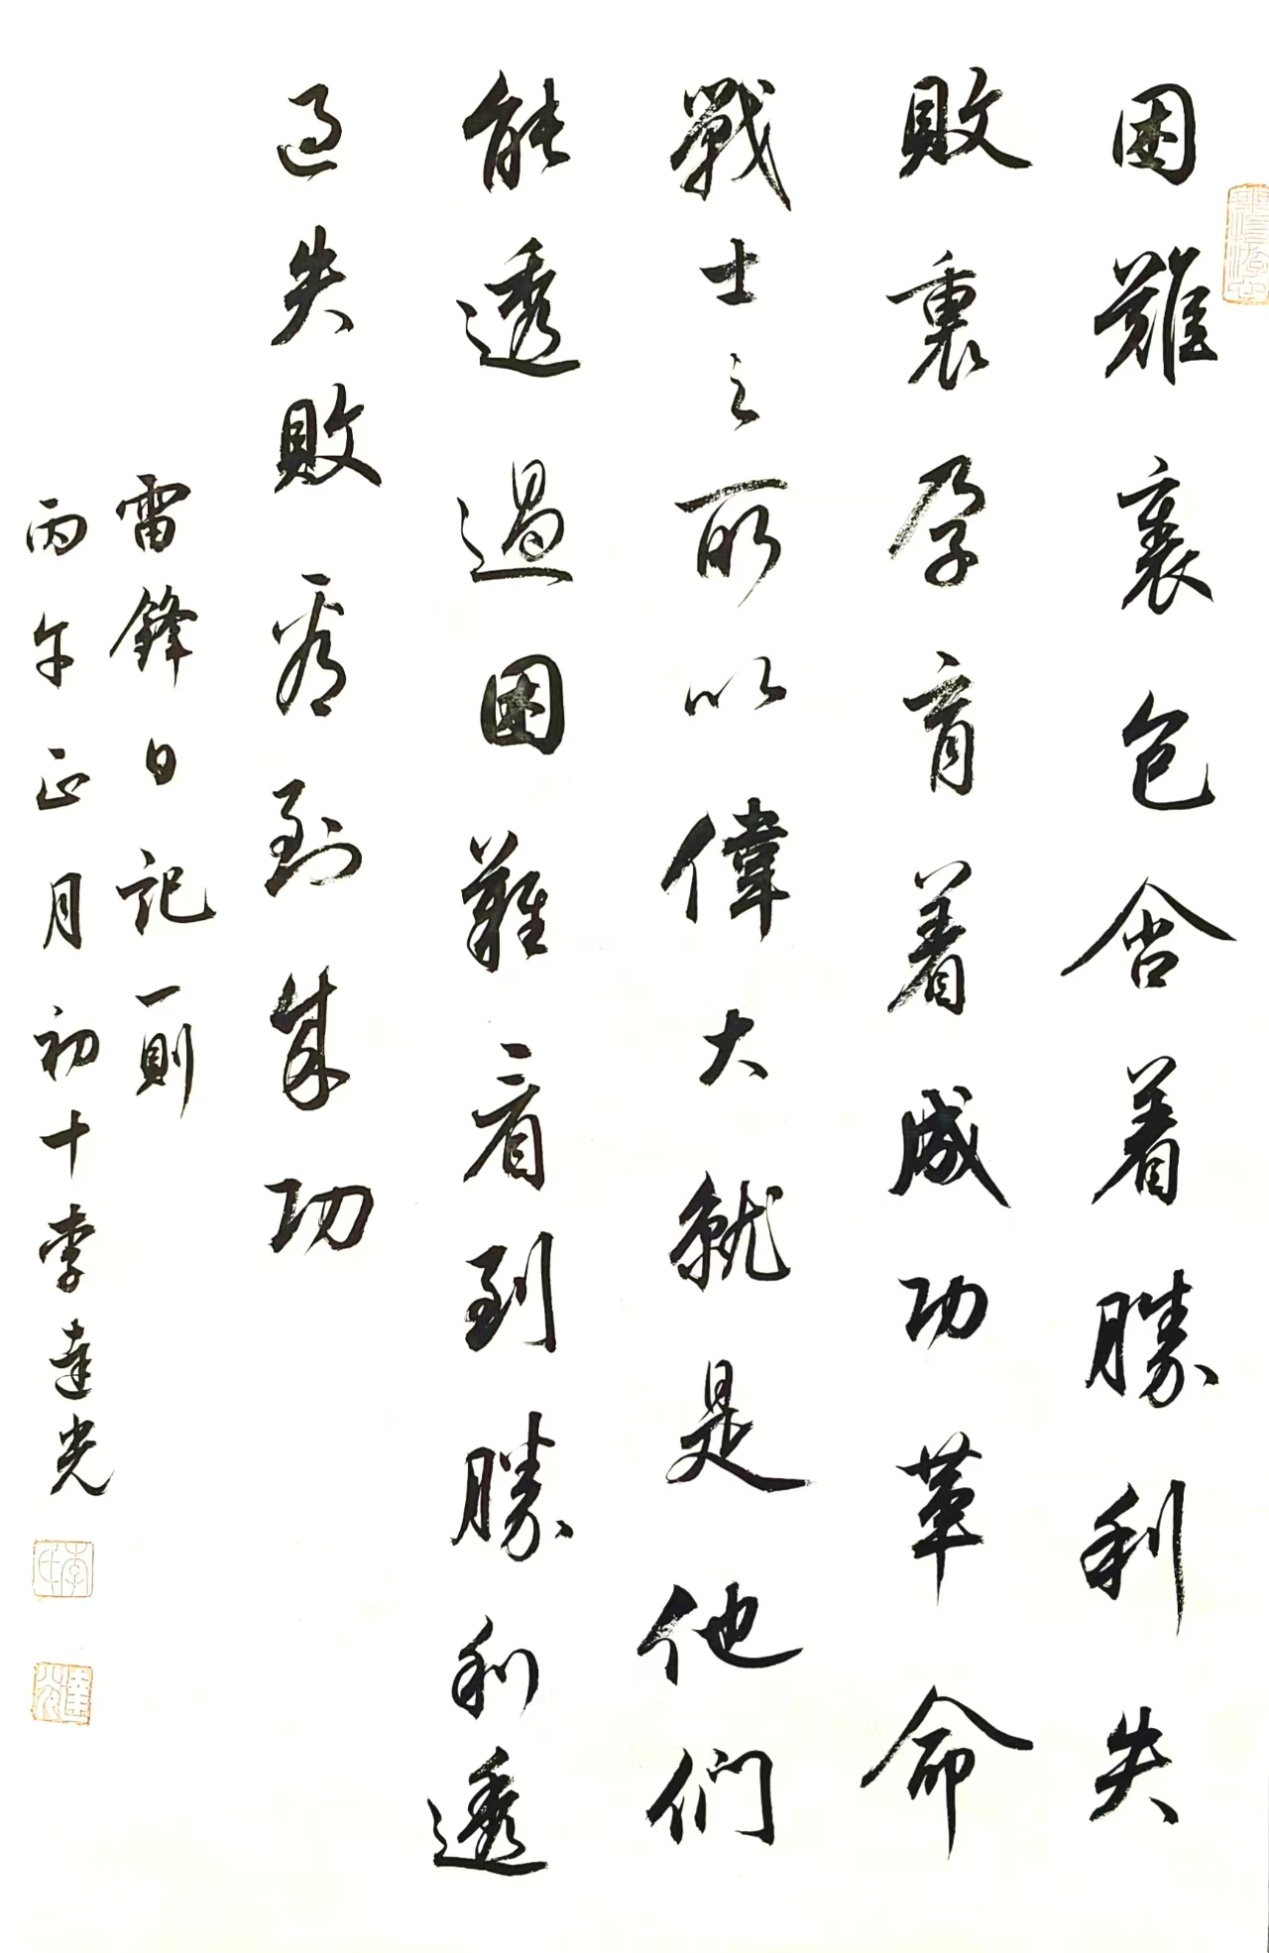 困難裏包含着勝利失
敗裏孕育着成功革命
戰士之所以偉大就是他们
能透過困難看到勝利透
过失敗看到成功
雷鋒日記一則
丙午正月初十李達光
李氏
達光